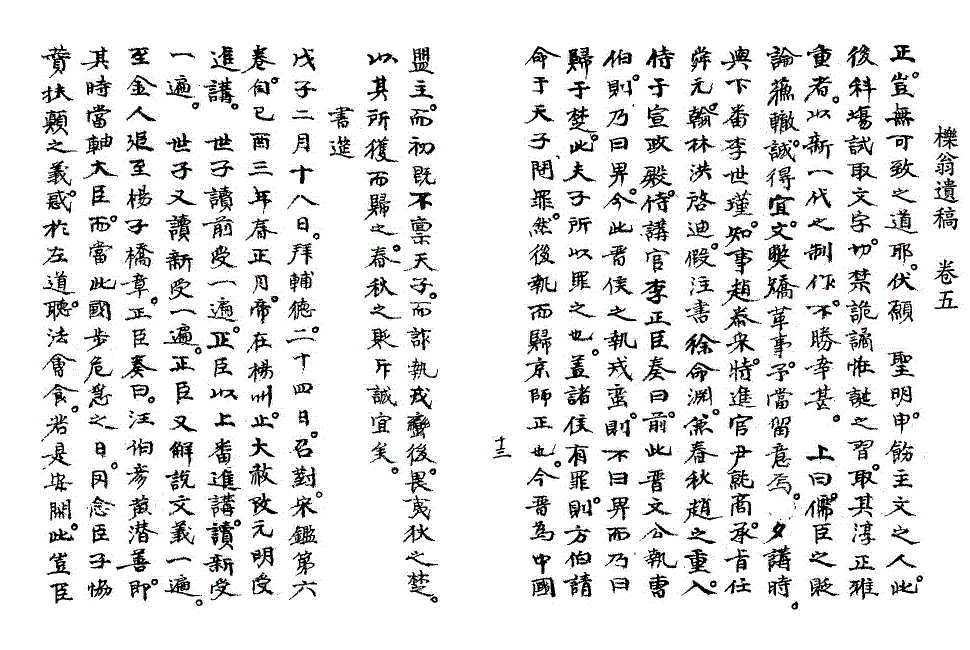 櫟翁遺稿　卷五
正。豈無可致之道耶。伏願　聖明申飭主文之人。此
後科場試取文字。切禁詭譎恠誕之習。取其淳正雅
重者。以新一代之制作。不勝幸甚。　上曰。儒臣之貶
論蘓轍。誠得宜。文弊矯革事。予當留意焉。　夕講時。
與下番李世瑾。知事趙泰采。特進官尹就商。承旨任
舜元。翰林洪啓迪。假注書徐命淵。係春秋趙之重。入
侍于宣政殿。侍講官李正臣奏曰。前此晋文公執曹
伯。則乃曰畀。今此晋侯之執戎蠻。則不曰畀而乃曰
歸于楚。此夫子所以罪之也。蓋諸侯有罪。則方伯請
命于天子問罪。然後執而歸京師正也。今晋爲中國
十三
盟主。而初旣不禀天子。而詐執戎蠻後。畏夷狄之楚。
以其所獲而歸之。春秋之貶斥誠宜矣。
書筵
戊子二月十八日。拜輔德。二十四日。召對。宋鑑第六
卷。自己酉三年春正月。帝在楊州止。大赦改元明受
進講。　世子讀前受一遍。正臣以上番進講。讀新受
一遍。　世子又讀新受一遍。正臣又解說文義一遍。
至金人追至楊子橋章。正臣奏曰。汪伯彦黃潜善。即
其時當軸大臣。而當此國步危急之日。罔念臣子恊
贊扶顚之義。惑於左道。聽法會食。若是安閒。此豈臣